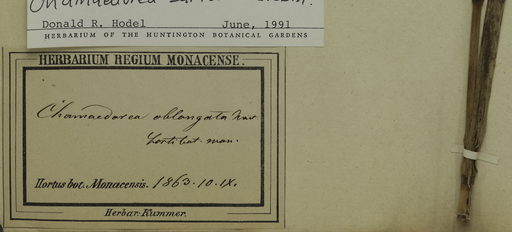 Chamaedorea
Donald R. Hodel June, 1991
HERBARIUM OF THE HUNTINGTON BOTANICAL GARDENS
HERBARIUM REGIUM MONACENSE.
Chamaedorea oblongata Mart
horti bot. mon.
Hortus bot. Monacensis. 1863. 10. IX.
Herbar. Kummer.